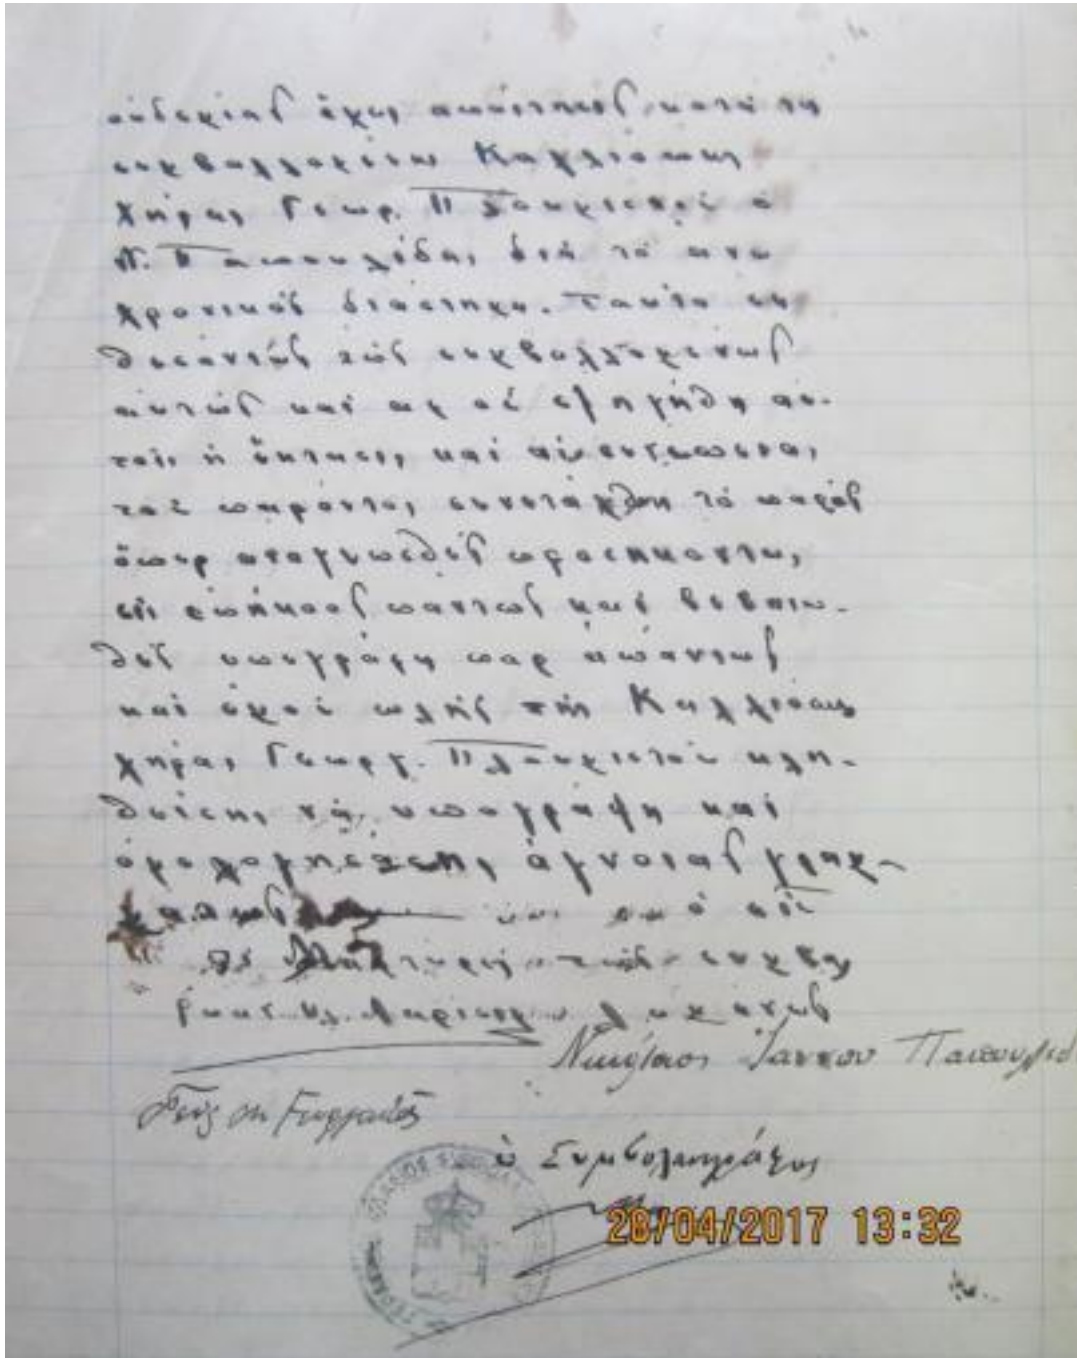 οὐδεμίαν ἔχει ἀπαίτησιν κατὰ τῆς
συμβαλλομένης Καλλιόπης
χήρας Γεωρ. Πλουμιστοῦ ὁ
Ν. Παπουλίδας διὰ τὸ ἄνω
χρονικὸν διάστημα. Ταῦτα συν
θεσάντων τῶν συμβαλλομένων
αὐτῶν καὶ ἀφ οὗ ἐξηγήθη αὐ-
τοῖς ἡ ἔκτασις καὶ αἱ συνέπειαι
τοῦ παρόντος συνετάχθη τὸ παρὸν
ὅπερ ἀναγνωσθὲν προσηκόντως
εἰς ἐπήκοον πάντων καὶ βεβαιω-
θὲν ὑπεγράφη παρ ἁπάντων
καὶ ἐμοῦ πλὴν τῆς Καλλιόπης
χήρας Γεωργ. Πλουμιστοῦ κλη-
θείσης νὰ ὑπογράψῃ καὶ
ὁμολογησάσης ἄγνοιαν γραμ-
μάτων
συμβαλ
Νικόλαος Ιαννου Παπουλίδ
ὁ Συμβολαιογράφος
28/04/2017 13:32